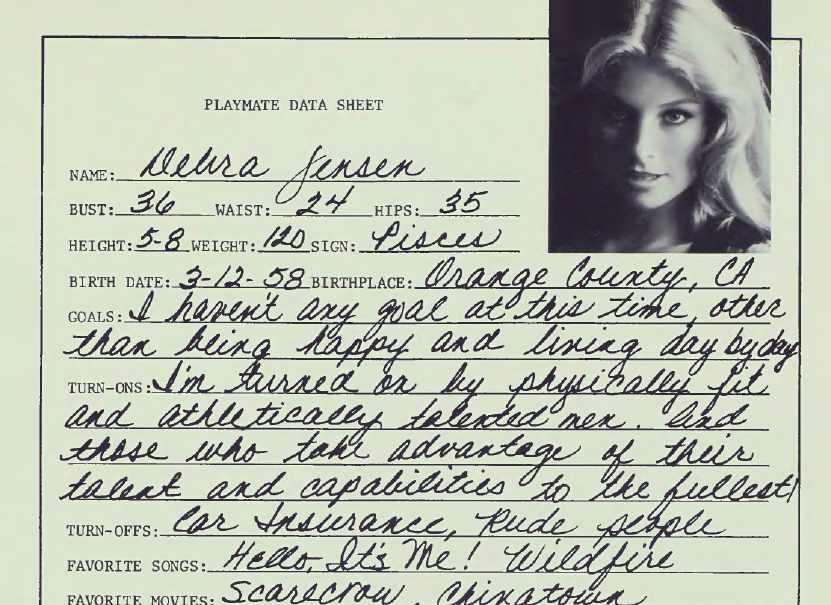 PLAYMATE DATA SHEET
NAME: Debra Jensen
BUST: 36 WAIST: 24 HIPS: 35
HEIGHT: 5-8 WEIGHT: 120 SIGN: Pisces
BIRTH DATE: 3-12-58 BIRTHPLACE: Orange County, CA
GOALS: I haven't any goal at this time, other
than being happy and living day by day
TURN-ONS: I'm turned on by physically fit
and athletically talented men. And
those who take advantage of their
talent and capabilities to the fullest!
TURN-OFFS: Car Insurance, Rude people
FAVORITE SONGS: Hello, It's Me! Wildfire
FAVORITE MOVIES: Scarecrow, Chinatown